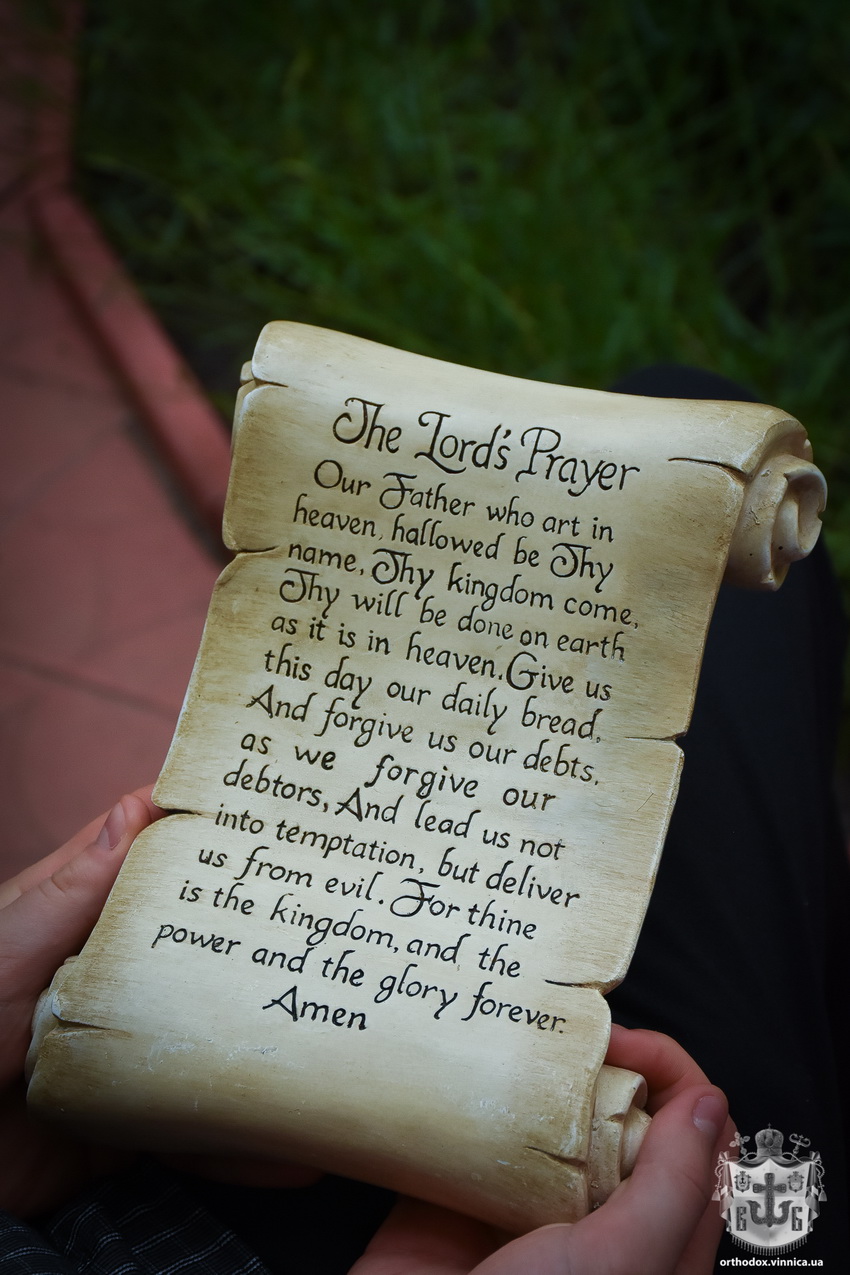 The Lord's Prayer
Our Father who art in
heaven, hallowed be Thy
name, Thy kingdom come,
Thy will be done on earth
as it is in heaven. Give us
this day our daily bread,
And forgive us our debts,
as we forgive our
debtors, And lead us not
into temptation, but deliver
us from evil. For thine
is the kingdom, and the
power and the glory forever.
Amen
Б Б
orthodox.vinnica.ua